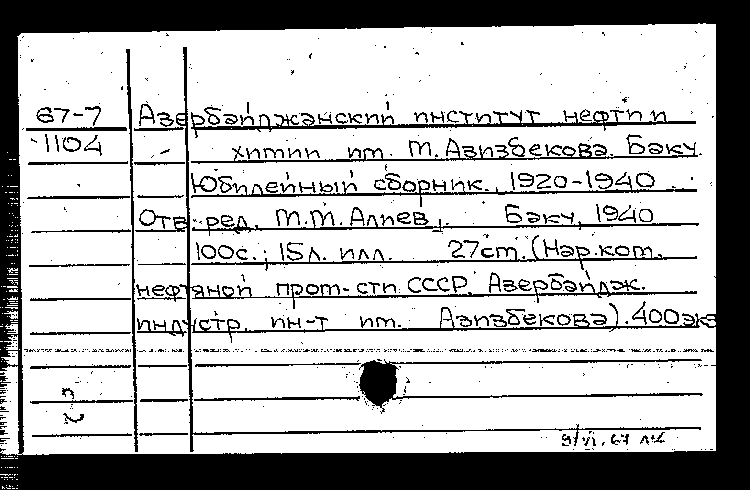 67-7 Азербайджанский институт нефти и
1104 химии им. М. Азизбекова. Баку.
Юбилейный сборник., 1920-1940
Отв. ред. М.М. Алиев. Баку, 1940
100с.; 15л. илл. 27cm. (Нар. ком.
нефтяной пром-сти СССР. Азербайдж.
индустр. ин-т им. Азизбекова). 400экз
9/VI.67